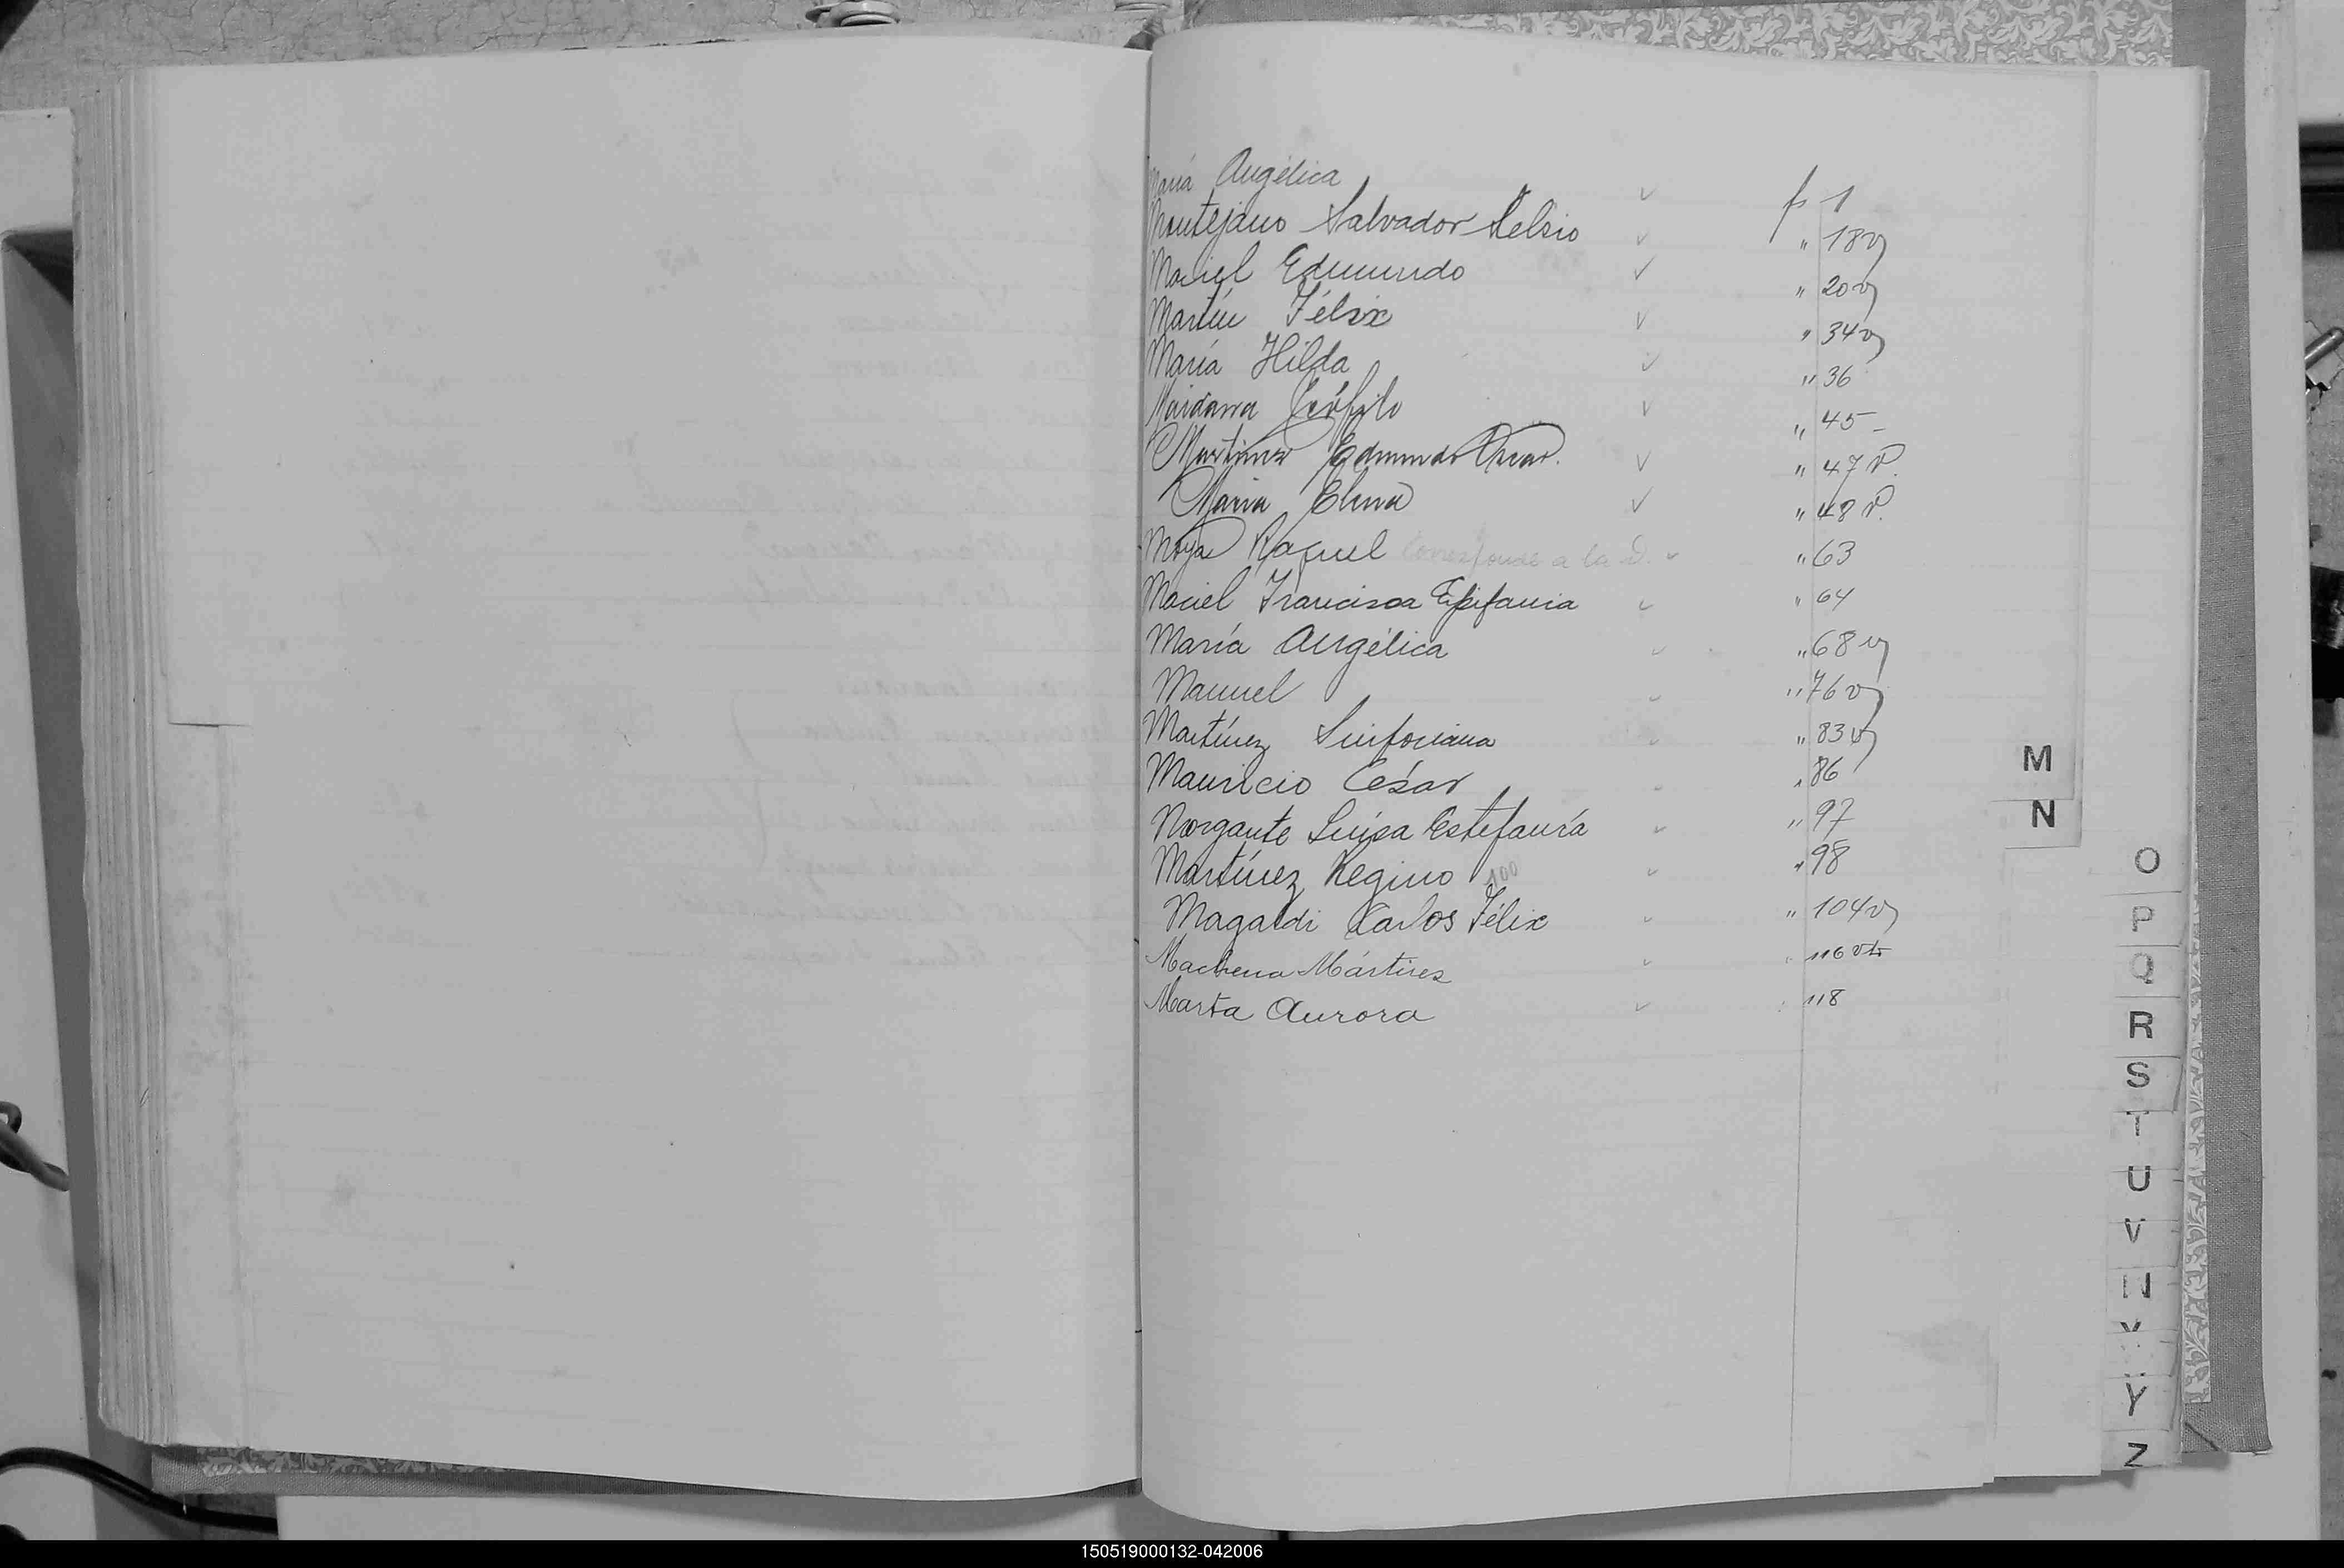 María Angélica ✓ fs 1
Montejano Salvador Celsio ✓ " 18v
Maciel Edmundo ✓ " 20v
Martín Félix ✓ " 34v
María Hilda ✓ " 36
Maidana Teófilo ✓ " 45
Martinez Edmundo Oscar. ✓ " 47 v.
Maria Elena ✓ " 48 v.
Moya Raquel Corresponde a la D. ✓ " 63
Maciel Francisca Epifania ✓ " 64
María Angélica ✓ " 68v
Manuel ✓ " 76v
Martínez Sinforiana ✓ " 83v
Mauricio César ✓ " 86
Morgante Luisa Estefanía ✓ " 97
Martínez Regino 100 ✓ " 98
Magaldi Carlos Félix ✓ " 104v
Mártires ✓ " 116 vto
Marta Aurora ✓ " 118
M
N
O
P
Q
R
S
T
U
V
W
Y
Z
150519000132-042006